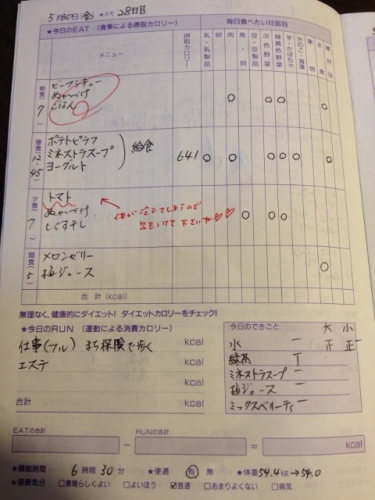 5月30日(金) ★ダイエット 28日目
★今日のEAT (食事による摂取カロリー)
毎日食べたい10品目
メニュー
摂取カロリー
乳・乳製品
卵
肉
魚・貝
豆・豆製品
淡色野菜
緑黄色野菜
芋・かぼちゃ
きのこ・海草
果物
朝食
7
ビーフシチュー
ぬかづけ
ごはん
昼食
12:45
ポテトピラフ
ミネストラスープ
ヨーグルト
給食
641
夕食
7
トマト
ぬかづけ
しらす干し
体が冷えてしまうので
気をつけて下さいね♡♡
間食
5
メロンゼリー
梅ジュース
合計 (kcal)
無理なく、健康的にダイエット! ダイエットカロリーをチェック!
★今日のRUN (運動による消費カロリー)
仕事(フル) まち探険で歩く kcal
エステ kcal
kcal
合計 kcal
今日のできごと 大 小
水 一 正 正一
緑茶 T
ミネストラスープ 一
梅ジュース 一
ミックスベリーティー 一
EATの合計 − RUNの合計 = kcal
★睡眠時間 6時間30分 ★便通 有 無 ★体重 54.4kg→54.0
★健康気分 □素晴らしくよい □よいほう ☑普通 □あまりよくない □病気